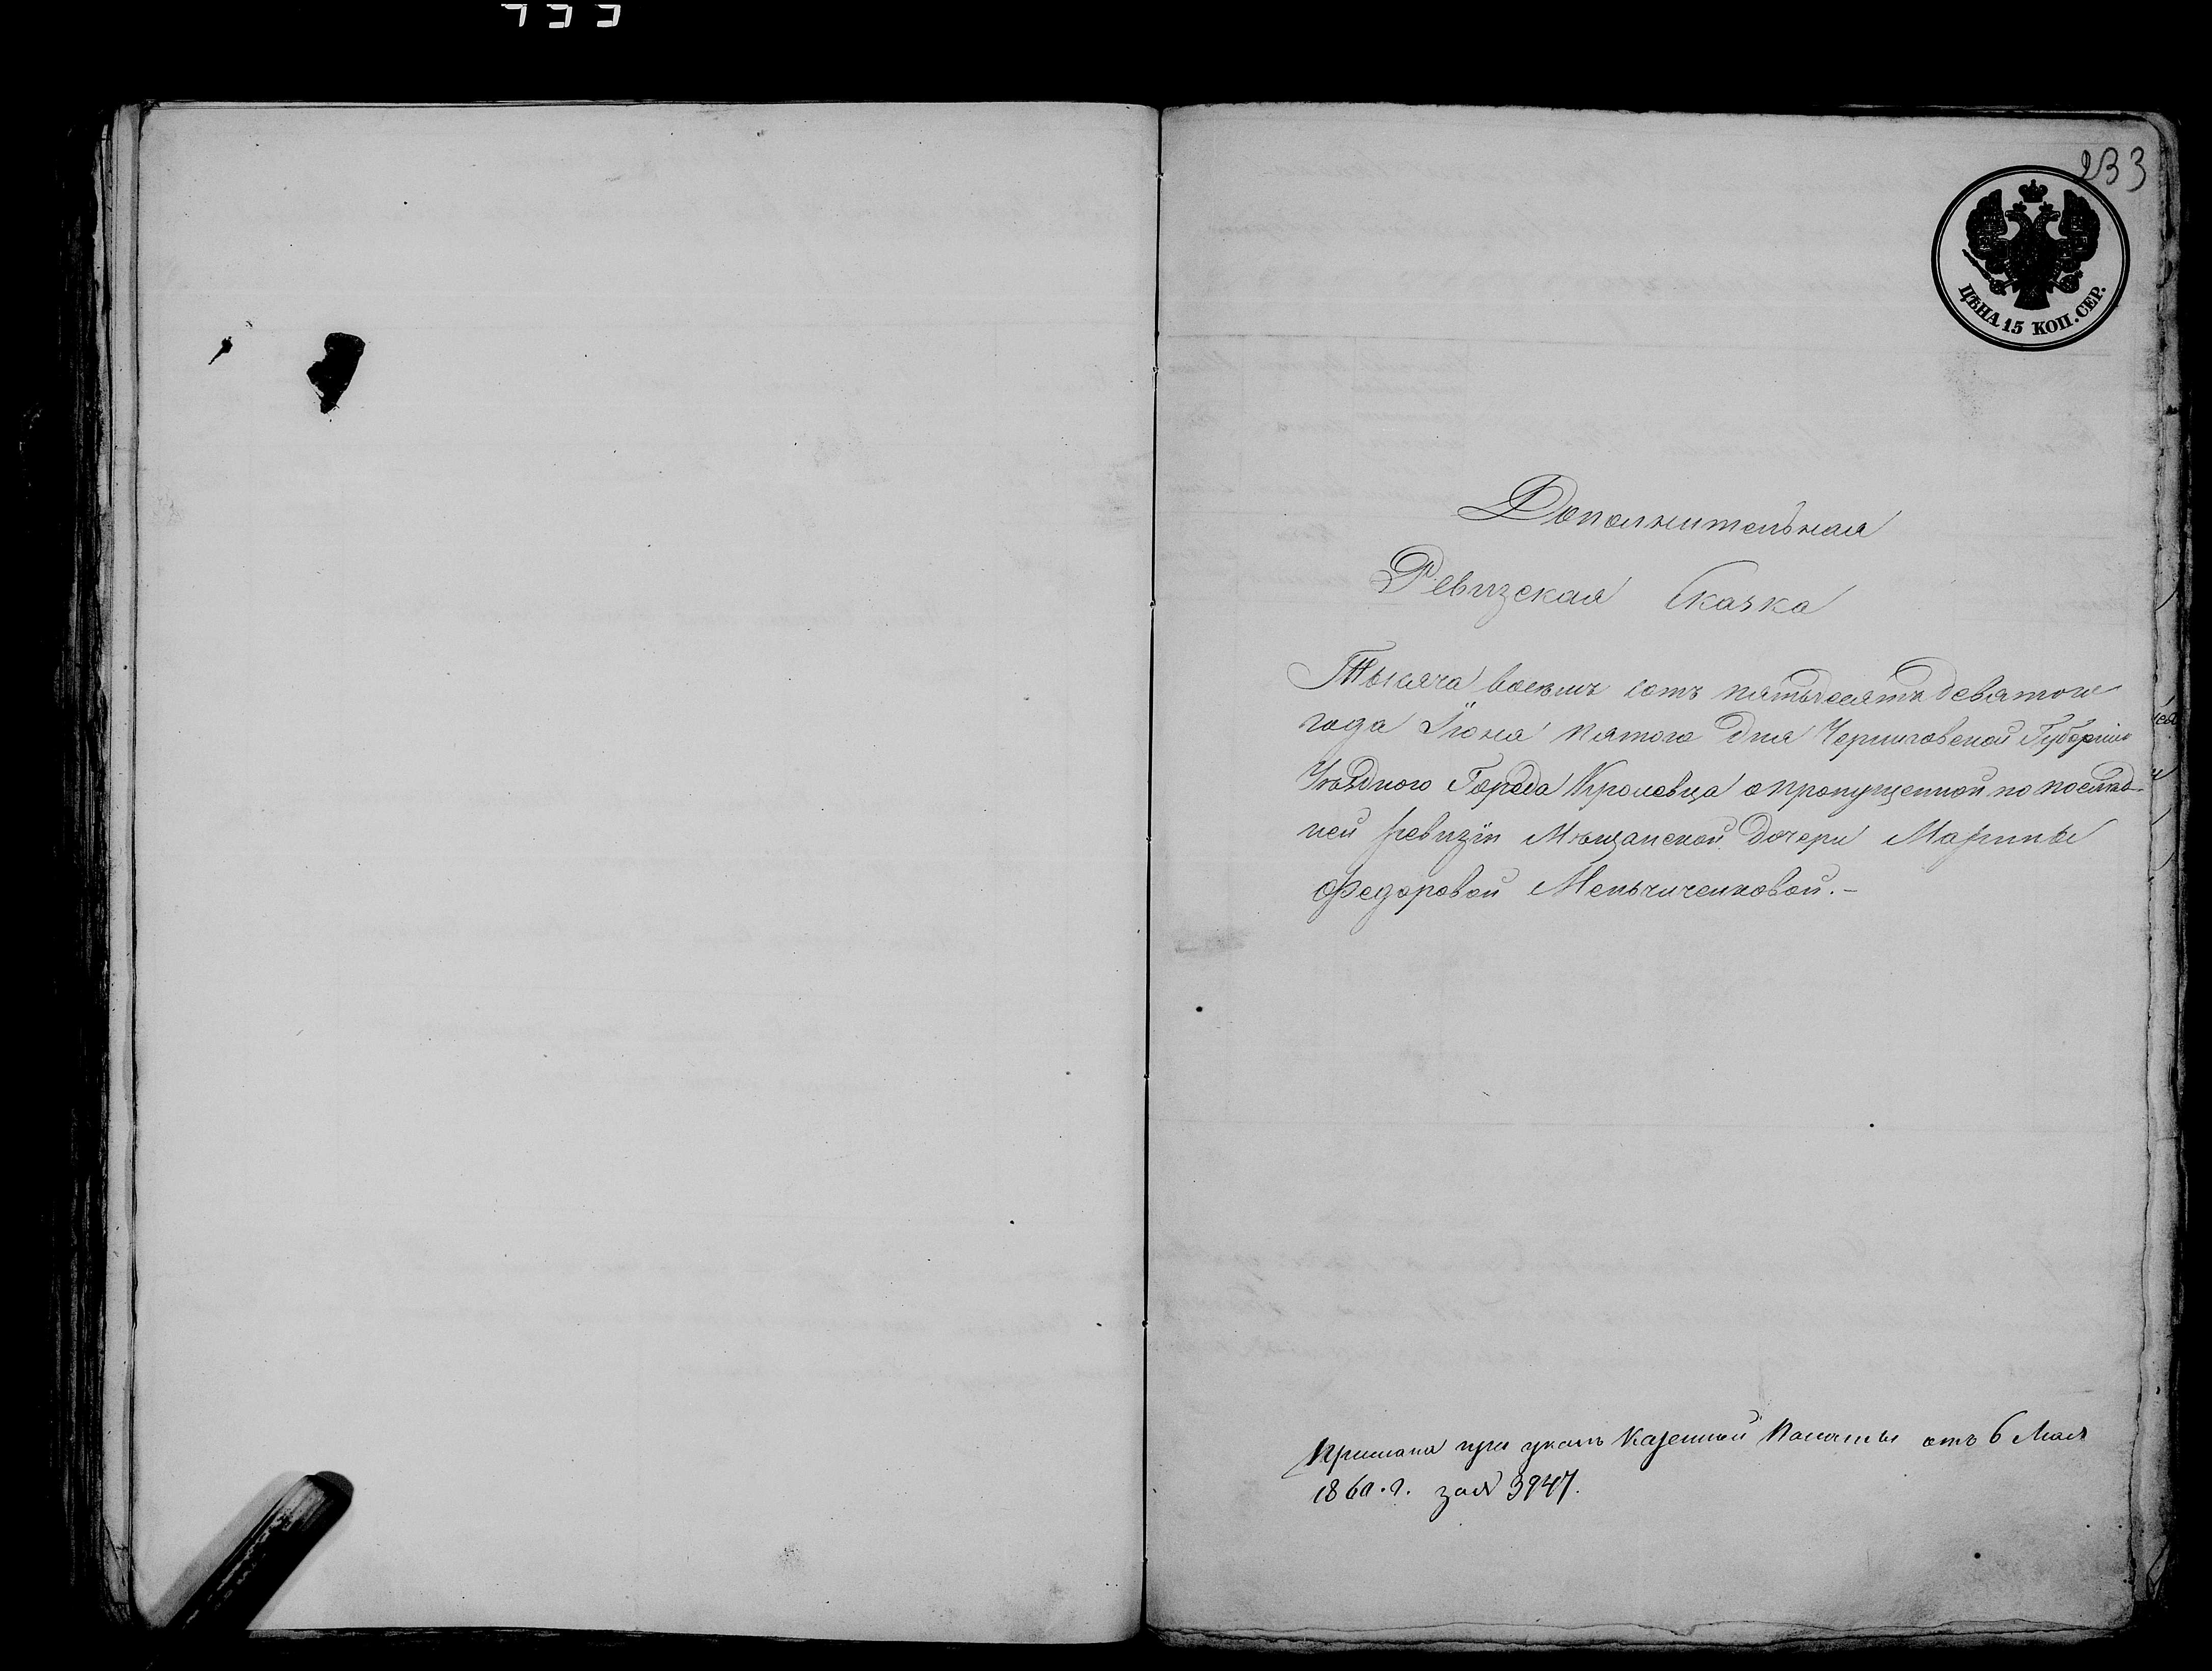 233
ЦѢНА 15 КОП. СЕР.
Дополнительная
Ревизская Сказка
Тысяча восемь сотъ пятьдесятъ девятого
года Іюня пятого дня Черниговской Губерніи
Уѣздного Города Кролевца о пропущенной по послѣд-
ней ревизіи Мѣщанской дочери Марины
Федоровой Меньчиченковой.-
Прислана при указѣ Казенной Палаты отъ 6 Мая
1860 г. за № 3947.